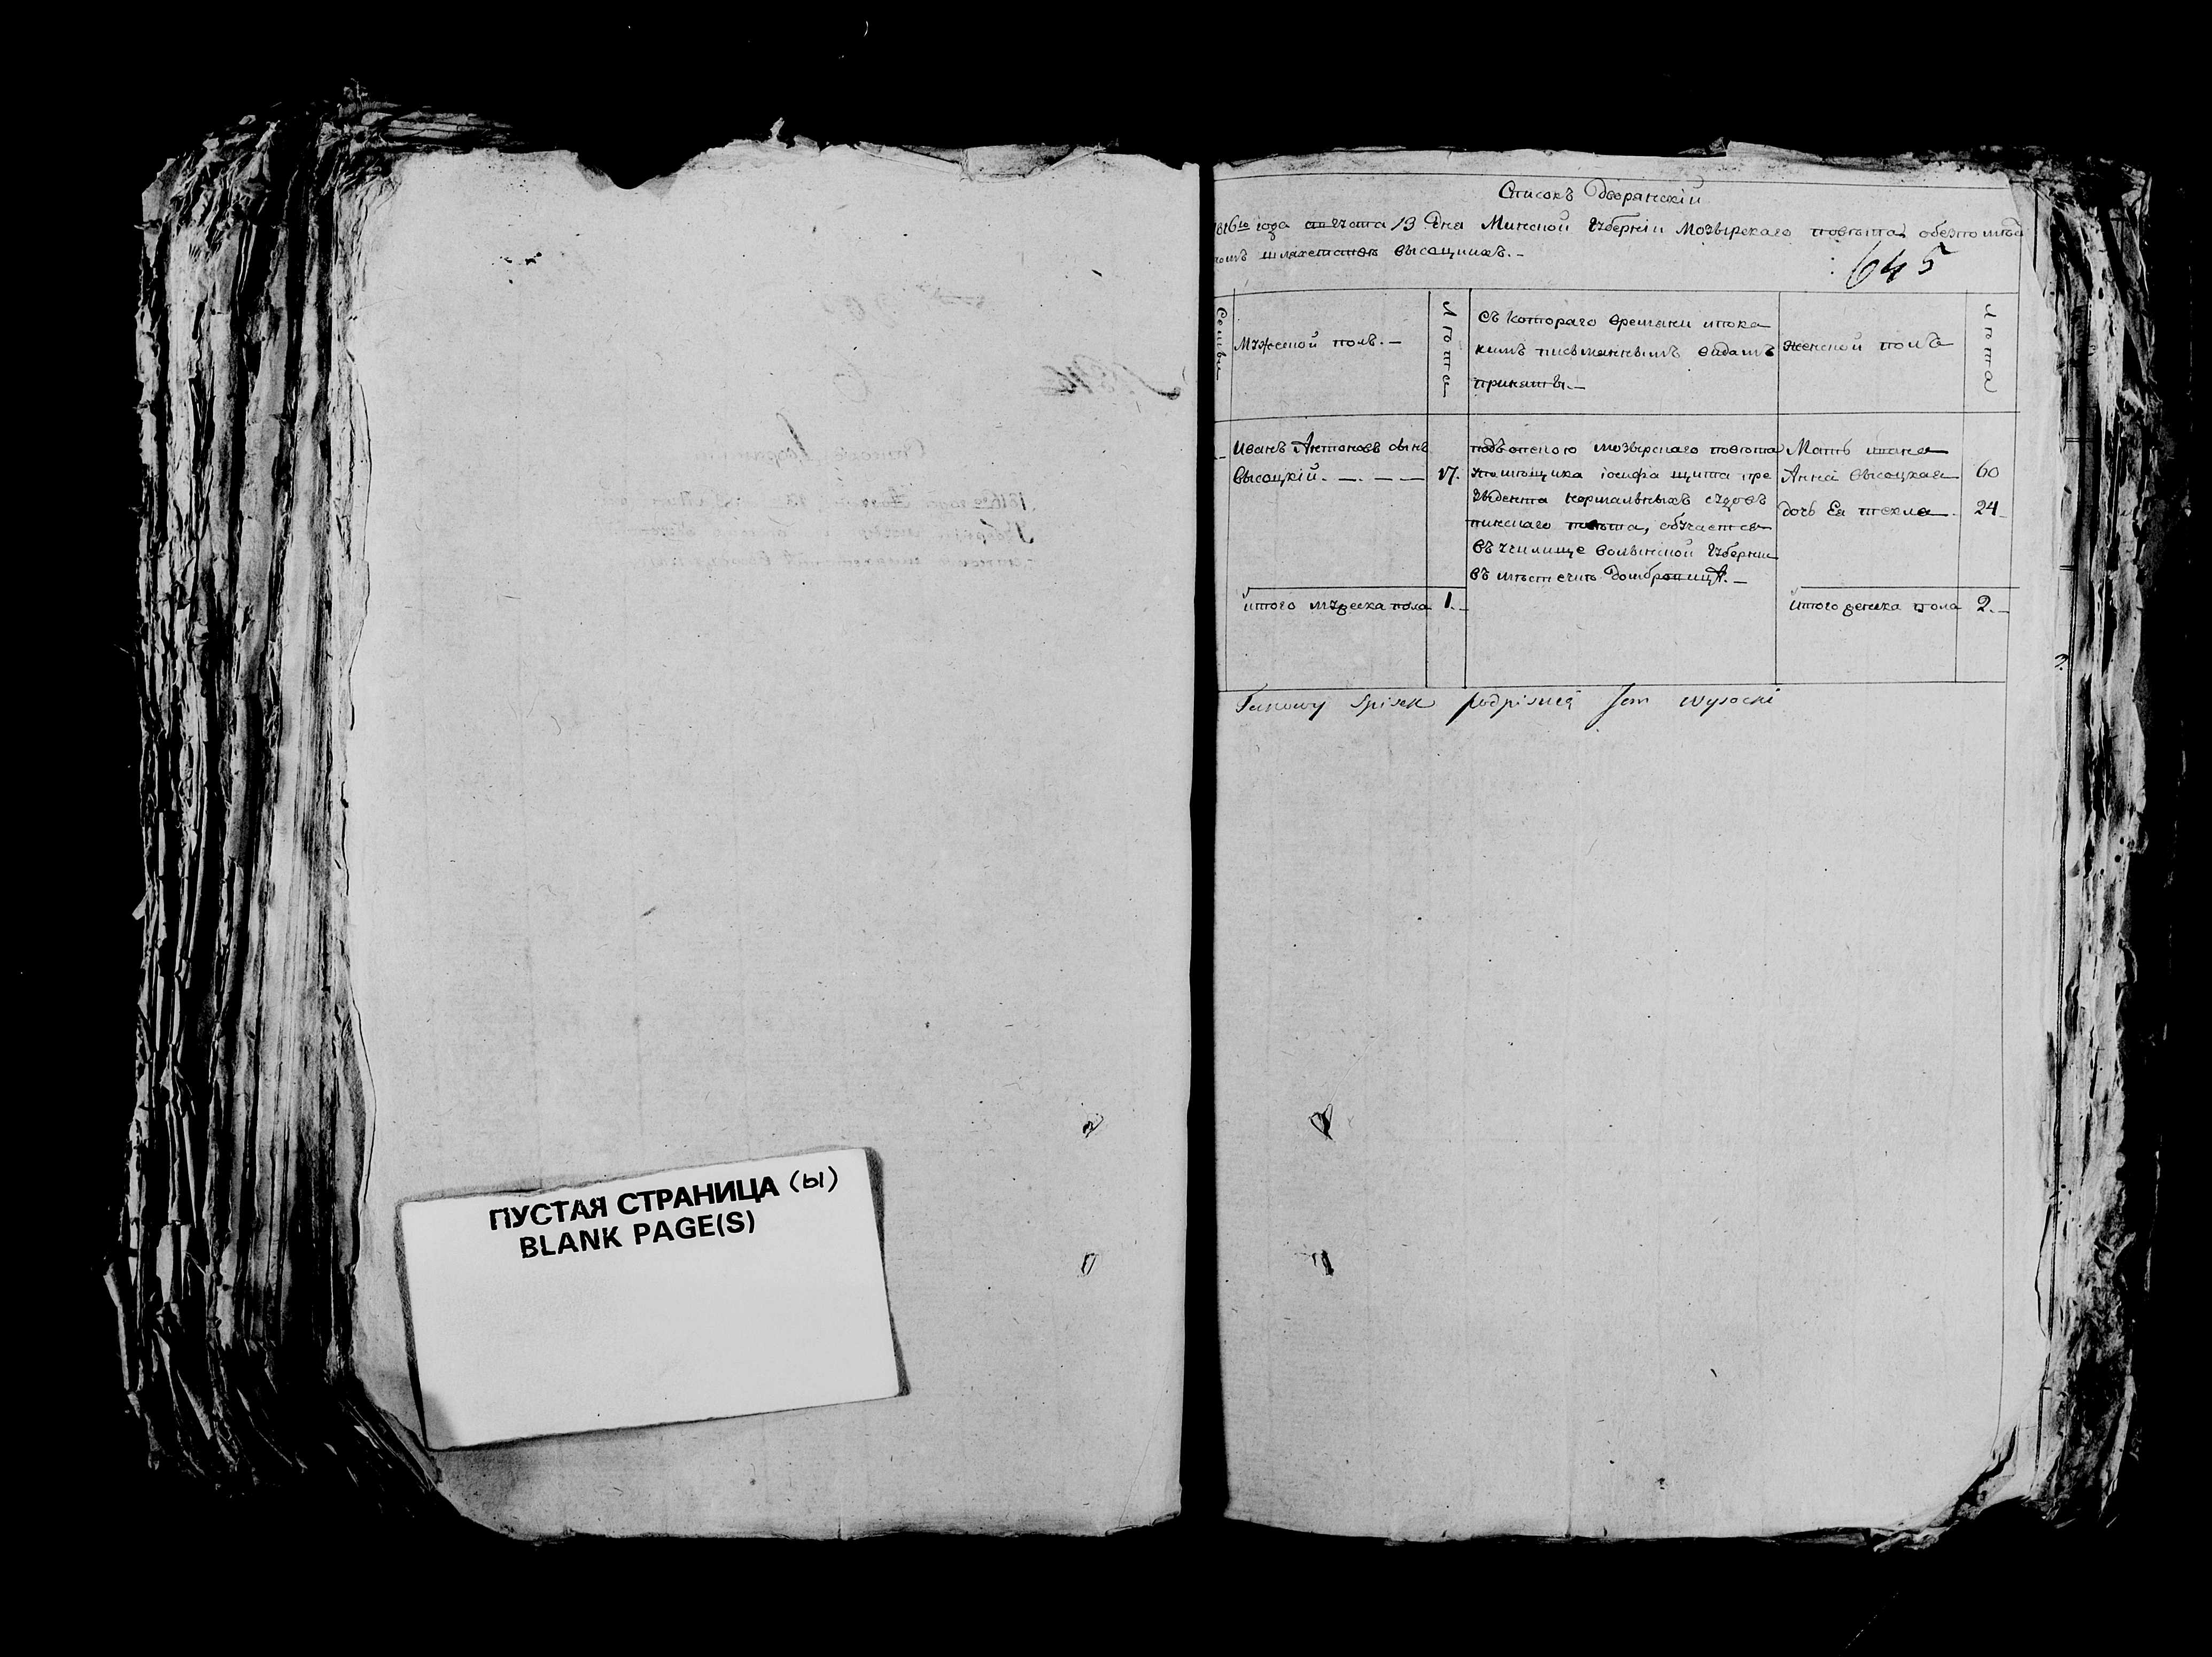 ПУСТАЯ СТРАНИЦА (ы)
BLANK PAGE(S)
Списокъ Дворянскiй
1816го года августа 13 Дня Минской Губернiи Мозырскаго повѣта
шляхетствѣ высоцкихъ. -
645
Семьи
Мужеской полъ. -
Лѣта
съ Котораго времени и по ка
кимъ письменнымъ видамъ
приняты. -
женской полъ
Лѣта
Иванъ Антоновъ сынъ
Высоцкiй. - . - - -
17.
мозырскаго повѣта
помѣщика iосифа щита пре
зыдента
пинскаго повѣта, обучается
въ училище волынской Губернiи
въ местечкѣ Домбровицѣ. -
Мать ивана
Анна высоцкая 60
дочь Ея текла - 24 -
итого мужеска пола 1. -
итого женска пола 2. -
Takowy Spisek podpisuię Jan Wysocki